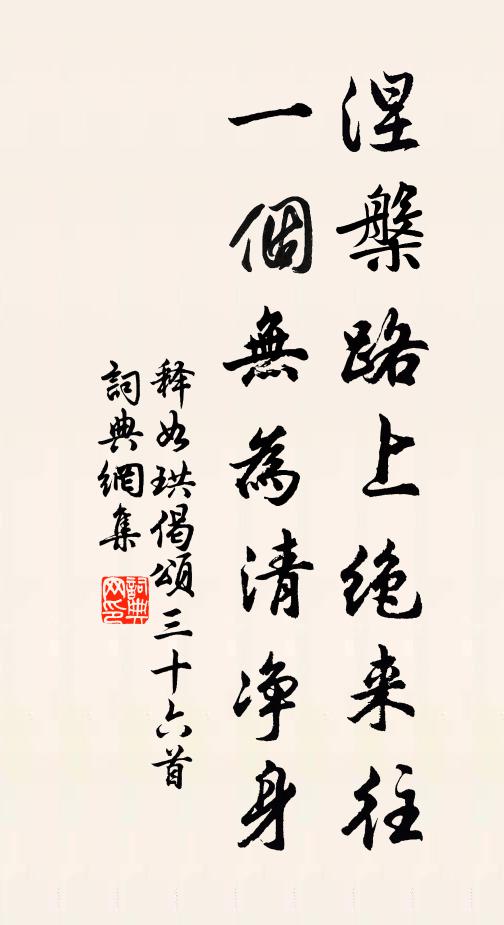 涅槃路上絶来往
一個無為清净身
释如珙偈頌三十六首
詞典網集
詞典網印